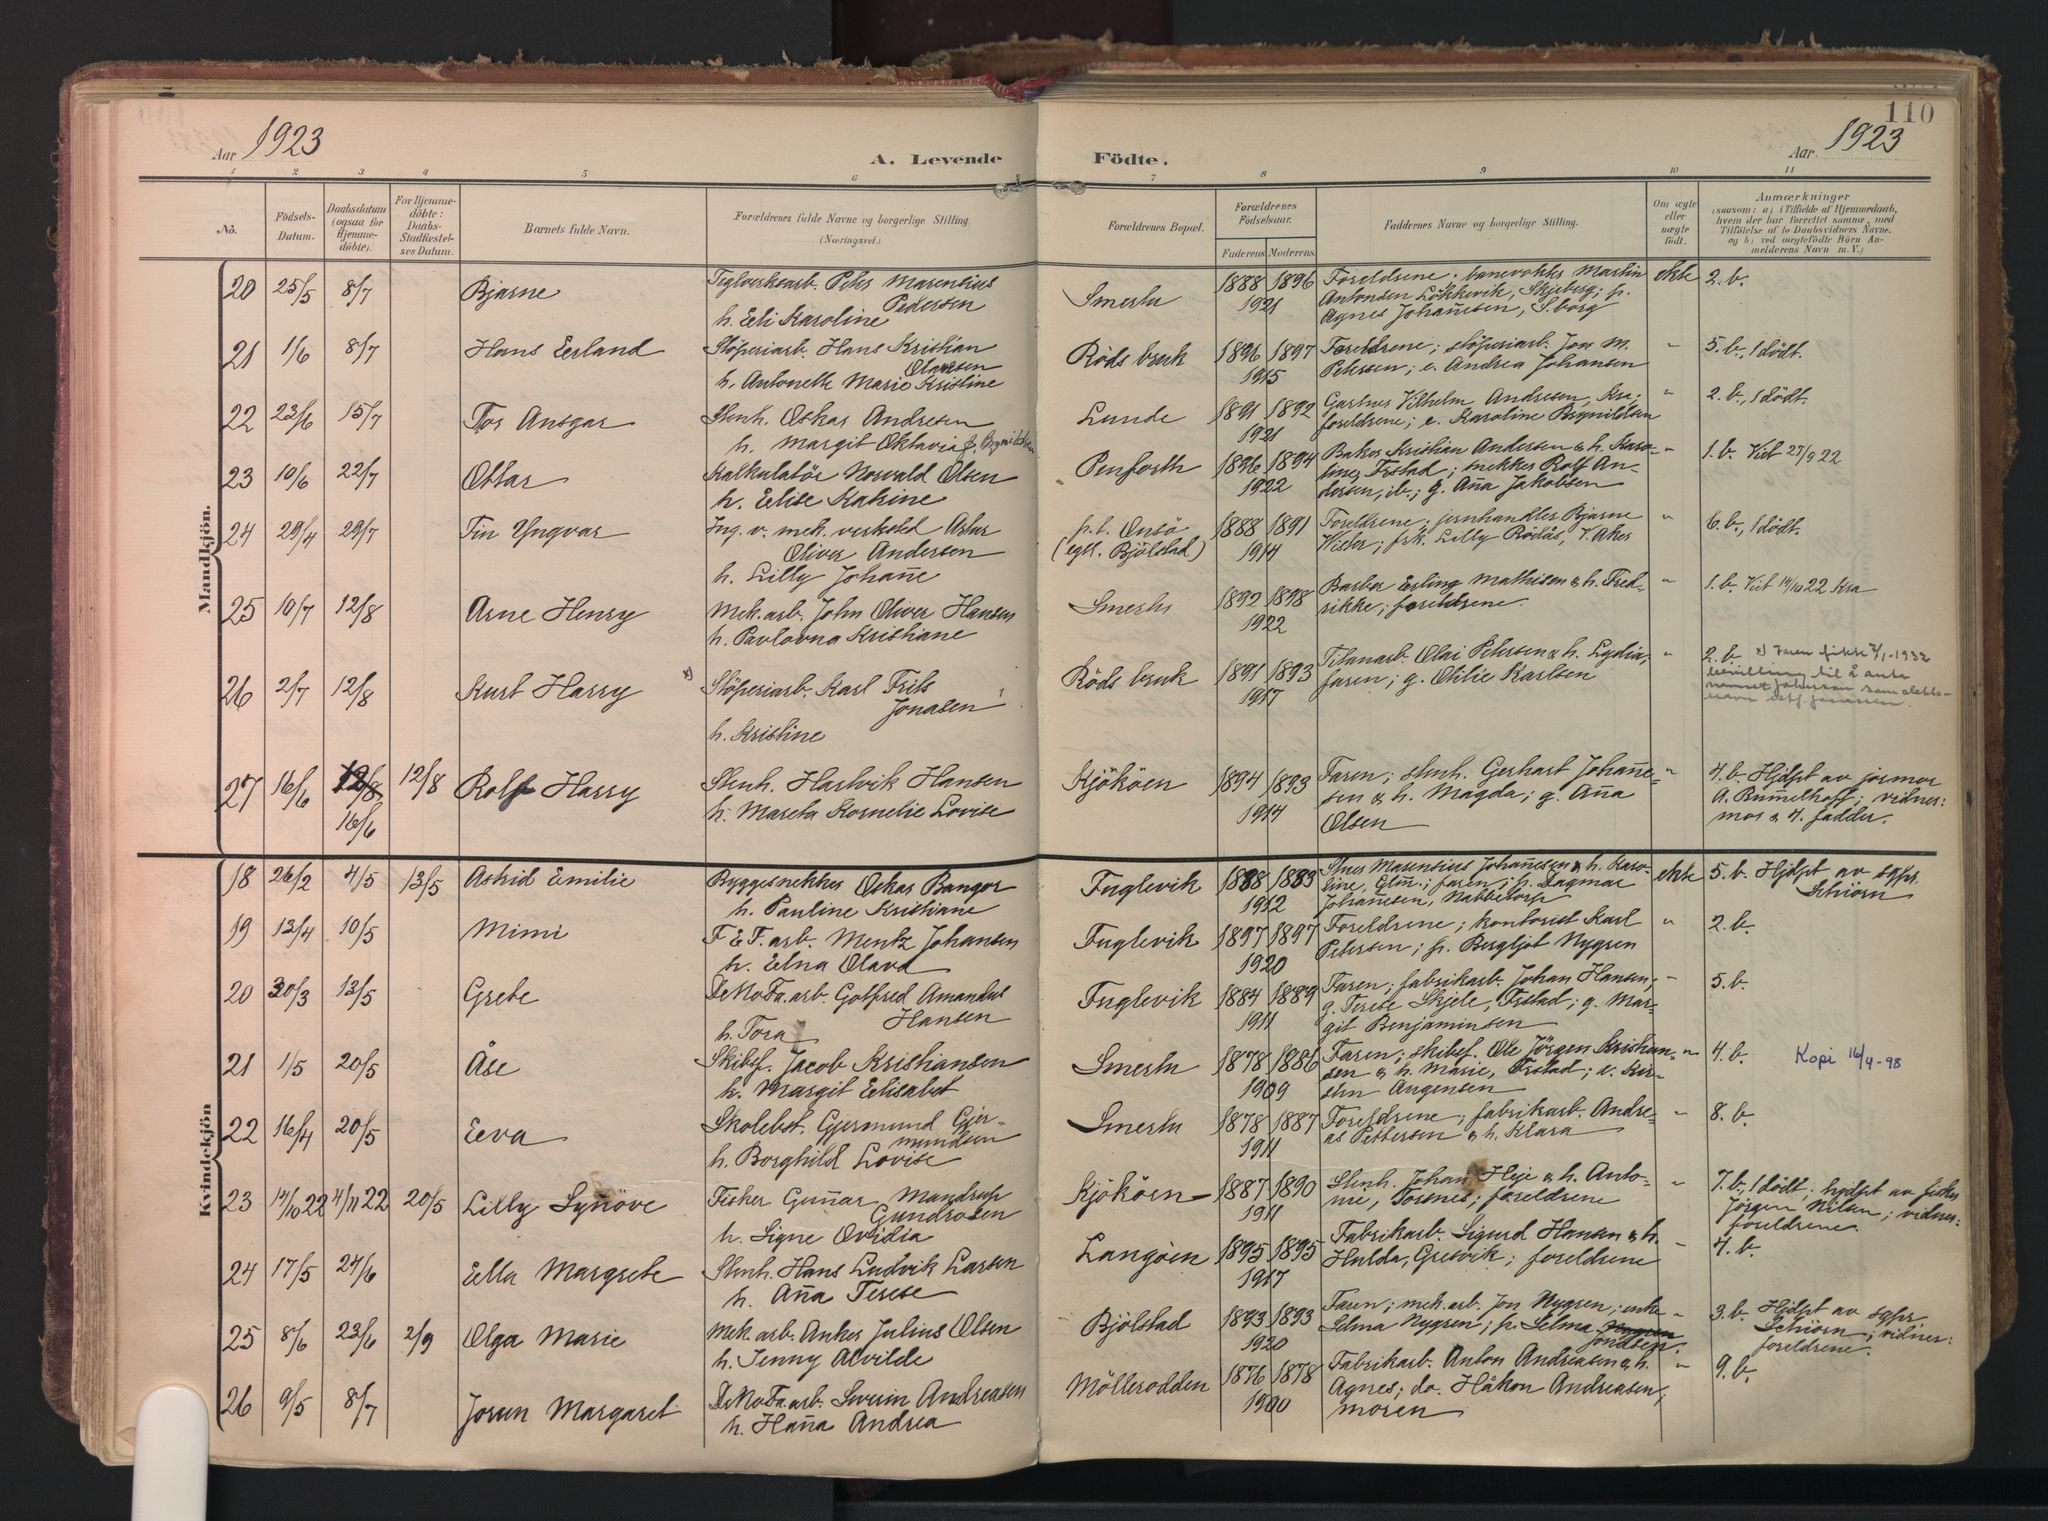 110
Aar 1923
A. Levende Födte.
Aar. 1923
1 2 3 4 5 6 7 8 9 10 11
No.
Födsels-Datum.
Daabsdatum (ogsaa for Hjemmedöbte).
For Hjemmedöbte: Daabs-Stadfæstelses Datum.
Barnets fulde Navn.
Forældrenes fulde Navne og borgerlige Stilling. (Næringsvei.)
Forældrenes Bopæl.
Forældrenes Födselsaar.
Faderens Moderens.
Faddernes Navne og borgerlige Stilling.
Om ægte eller uægte födt.
Anmærkninger
(saasom: a) i Tilfælde af Hjemmedaab, hvem der har forrettet samme, med Tilföielse af to Daabsvidners Navne, og b) ved uegtefödte Börn Anmelderens Navn m. V.)
Mandkjön.
20 25/5 8/7 Bjarne
Teglverksarb. Peter Marensius
Pedersen
h. Eeli Karoline
Smertu 1888 1896
1921
Foreldrene; banevokter Martin
Antonsen Lökkevik, Skjeberg; p.
Agnes Johañesen, S.borg
ekte 2.b.
21 1/6 8/7 Hans Eerland
Stöperiarb. Hans Kristian
Olavesen
h. Antonette Marie Kristine
Röds bruk 1896 1897
1915
Foreldrene; stöperiarb. Jon M.
Petersen; e. Andrea Johansen
" 5.b., 1 dödt.
22 23/6 15/7 Tor Ansgar
Stenh. Oskar Andresen
h. Margit Oktavia
Lunde 1891 1892
1921
Gartner Vilhelm Andresen, Kra;
foreldrene; e. Karoline Brynildsen
" 2.b., 1 dödt.
23 10/6 22/7 Ottar
Kalkulatör Norvald Olsen
h. Elise Katrine
Penforth 1896 1894
1922
Baker Kristian Andersen & h. Karo-
line, Frstad; snekker Rolf An-
dersen, ib.; g. Aña Jakobsen
" 1.b. Viet 27/9 22
24 29/4 29/7 Fin Yngvar
Ing. v. mek. verksted Artur
Oliver Andersen
h. Lilly Johañe
p.t. Onsö
(egtl. Bjölstad)
1888 1891
1914
Foreldrene; jernhandler Bjarne
Wister; frk. Lilly Rödås, V. Aker
" 6.b., 1 dödt.
25 10/7 12/8 Arne Henry
Mek. arb. John Oliver Hansen
h. Pavlovna Kristiane
Smertu 1892 1898
1922
Barber Erling Mathisen & h. Fred-
rikke; foreldrene.
" 1.b. Viet 14/10 22 Kra
26 2/7 12/8 Kurt Harry
x) Stöperiarb. Karl Frits
Jonasen
h. Kristine
Röds bruk 1891 1893
1917
Titanarb. Olai Petersen & h. Lydia,
faren; g. Otilie Karlsen
" 2.b. x) Faren fikk 7/1-1932
bevilling til å anta
navnet Johansen som slekts-
navn istf. Jonassen.
27 16/6 12/8 16/6 12/8 Rolf Harry
Stenh. Hartvik Hansen
h. Mareta Kornelie Lovise
Kjököen 1894 1893
1914
Faren; stenh. Gerhart Johañe-
sen & h. Magda; g. Aña
Olsen
" 4.b. Hjdpt av jormor
A. Bum̃elhoff; vidner:
mor & 4. fadder.
Kvindekjön
18 26/2 4/5 13/5 Astrid Emilie
Byggesnekker Oskar Bangor
h. Pauline Kristiane
Fuglevik 1888 1883
1912
Stuer Marensius Johañesen & h. Karo-
line, Glm̃.; faren; p. Dagmar
Johañesen, Nabbetorp
ekte 5.b. Hjdpt av sgpr.
Schiörn
19 13/4 10/5 Mimi
F & F. arb. Mentz Johansen
h. Elna Olava
Fuglevik 1897 1897
1920
Foreldrene; kontorist Karl
Petersen; p. Bergljot Nygren
" 2.b.
20 30/3 13/5 Grete
DeNoFa.arb. Gotfred Amandus
Hansen
h. Tora
Fuglevik 1884 1889
1911
Faren; fabrikarb. Johan Hansen;
g. Terese Skjele, Frstad; g. Mar-
git Benjaminsen
" 5.b.
21 1/5 20/5 Åse
Skibsf. Jacob Kristiansen
h. Margit Elisabet
Smertu 1878 1886
1909
Faren; skibsf. Ole Jörgen Kristian-
sen & h. Marie, Frstad; e. Kir-
sten Augensen
" 4.b. Kopi 16/4-98
22 16/4 20/5 Eeva
Skolebst. Gjermund Gjer-
mundsen
h. Borghild Lovise
Smertu 1878 1887
1911
Foreldrene; fabrikarb. Andre-
as Pettersen & h. Klara
" 8.b.
23 14/10 22 4/11 22 20/5 Lilly Synöve
Fisker Guñar Mandrup
Gundrosen
h. Signe Ovidia
Kjököen 1887 1890
1911
Stenh. Johan Heje & h. Anto-
nie, Torsnes; foreldrene
" 7.b., 1 dödt; hjdpt av fisker
Jörgen Nilsen; vidner:
foreldrene.
24 17/5 24/6 Ella Margrete
Stenh. Hans Ludvik Larsen
h. Aña Terese
Langöen 1895 1895
1917
Fabrikarb. Sigurd Hansen & h.
Hulda, Gresvik; foreldrene
" 4.b.
25 8/6 23/6 2/9 Olga Marie
Mek. arb. Anker Julius Olsen
h. Jenny Alvilde
Bjölstad 1893 1893
1920
Faren; mek. arb. Jon Nygren; enke
Selma Nygren; p. Selma Nygren
Jondsen.
" 3.b. Hjdpt av sgpr
Schiörn; vidner:
foreldrene.
26 9/5 8/7 Jorun Margaret
DeNoFa.arb. Severin Andreasen
h. Haña Andrea
Mölleródden 1876 1878
1900
Fabrikarb. Anton Andreasen & h.
Agnes; do. Håkon Andreasen;
moren
" 9.b.